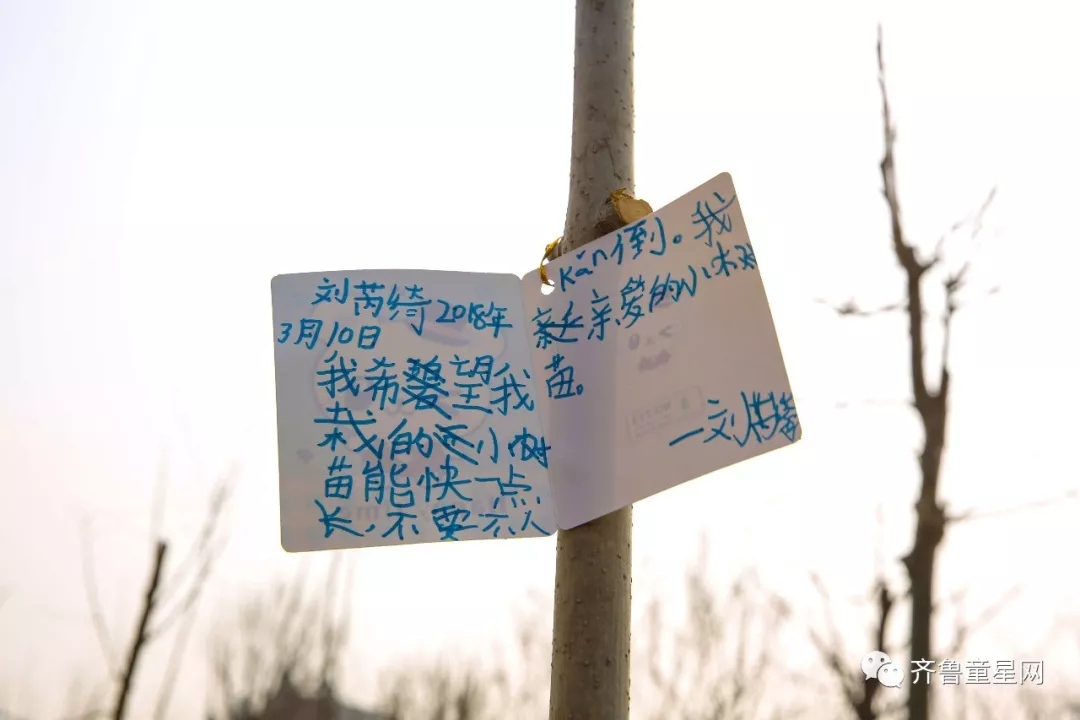 刘芮绮2018年
3月10日
我希望我
栽的小树
苗能快一点
长,不要六人
kǎn倒。我
亲爱的小树
苗。
—刘芮绮
齐鲁童星网